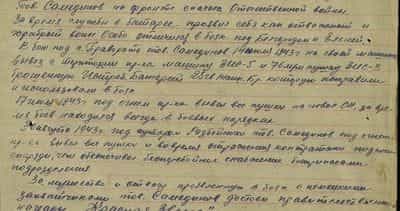 Тов. Самединов на фронте с начала Отечественной войны.
За время службы в батарее проявил себя как отважный и
храбрый воин. Особо отличился в боях под Белгородом и
В бою под с. Правороть тов. Самединов 14 июля 1943 г. на своей машине
вывез с территории пр-ка машину ЗИС-5 и 76 м/м пушку ЗИС-3
брошенную батареей которую исправили
и использовали в бою.
17 июля 1943 г. под огнем пр-ка вывез все пушки на новое ОП, за время
боя находился всегда в боевых порядках.
августа 1943 г. под хутором тов. Самединов под огнем
пр-ка вывез все пушки и вовремя отражения контратаки подвозил
снаряды, чем обеспечил бесперебойное снабжение боеприпасами
подразделения.
За мужество и отвагу проявленную в боях с немецкими
захватчиками тов. Самединов достоин правительственной
награды "Красная Звезда"